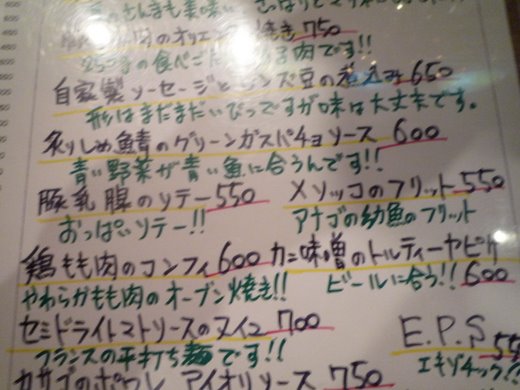 のさんまも美味い
肉のオリエン 焼き 750
の食べごた ある肉です!!
自家製ソーセージとレンズ豆の煮込み 650
形はまだまだいびつですが味は大丈夫です。
炙りしめ鯖のグリーンガスパチョソース 600
青い野菜が青い魚に合うんです!!
豚乳腺のソテー 550 メソッコのフリット 550
おっぱいソテー!! アナゴの幼魚のフリット
鶏もも肉のコンフィ 600 カニ味噌のトルティーヤピザ
やわらかもも肉のオーブン焼き!! ビールに合う!! 600
セミドライトマトソースのヌイユ 700
フランスの平打ち麺です!! E.P.S 55
エキゾチック
カサゴのポワレ アイオリソース 750